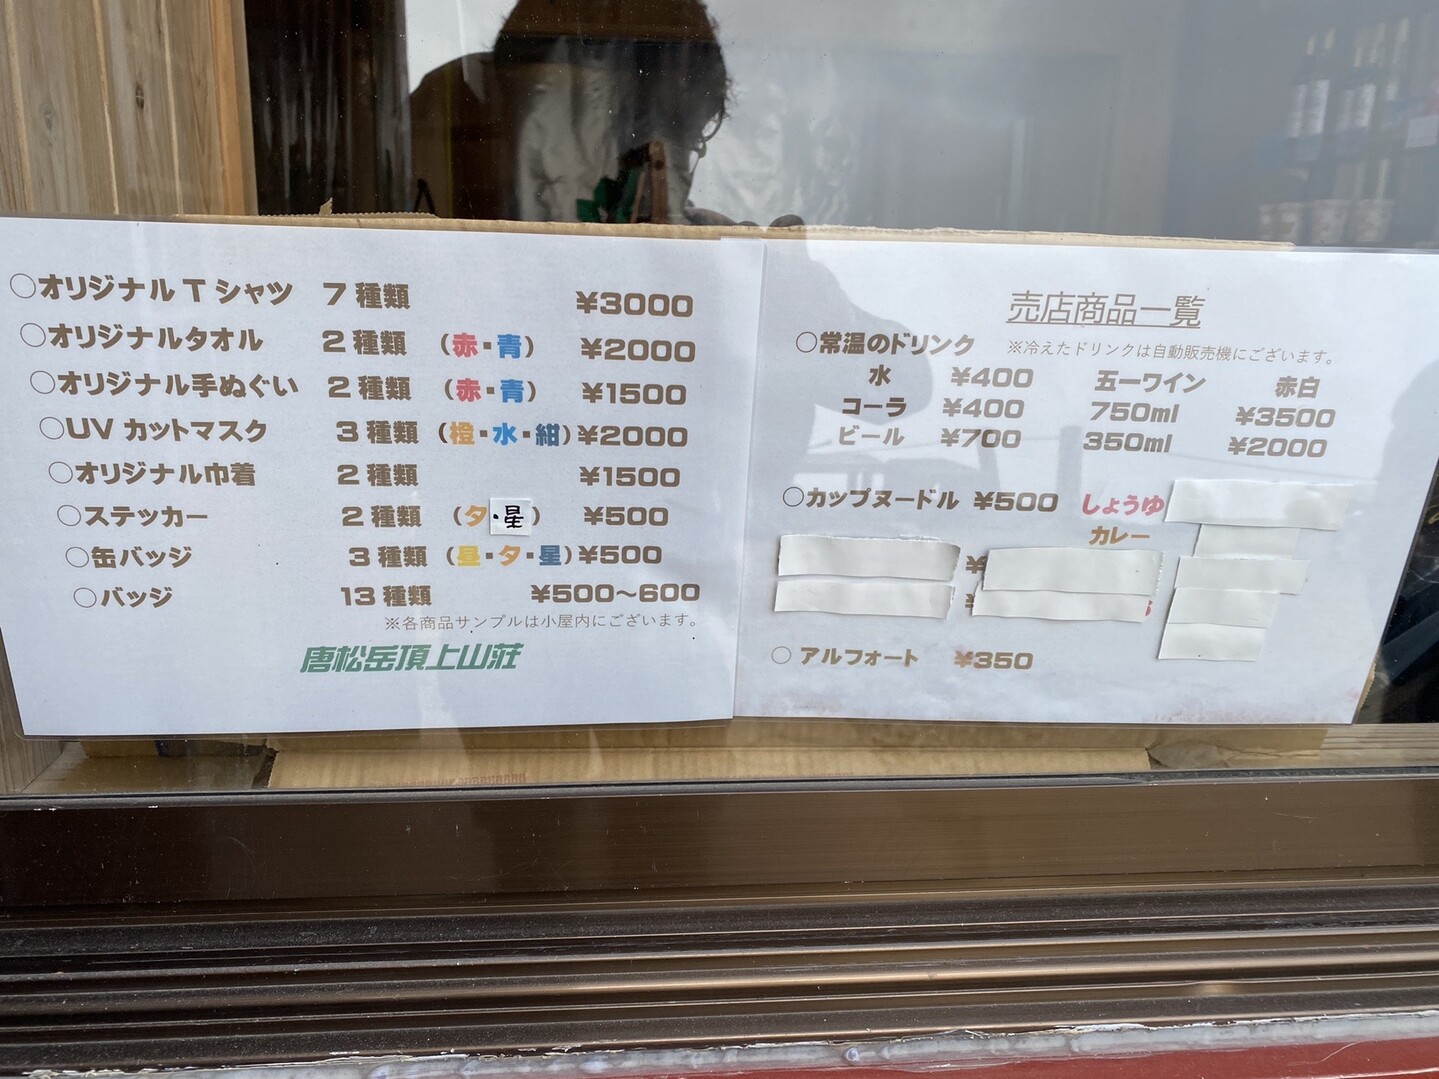 ○オリジナルTシャツ 7種類 ¥3000
○オリジナルタオル 2種類 (赤・青) ¥2000
○オリジナル手ぬぐい 2種類 (赤・青) ¥1500
○UVカットマスク 3種類 (橙・水・紺) ¥2000
○オリジナル巾着 2種類 ¥1500
○ステッカー 2種類 (夕・星) ¥500
○缶バッジ 3種類 (昼・夕・星) ¥500
○バッジ 13種類 ¥500～600
※各商品サンプルは小屋内にございます。
唐松岳頂上山荘
売店商品一覧
○常温のドリンク ※冷えたドリンクは自動販売機にございます。
水 ¥400 五一ワイン 赤白
コーラ ¥400 750ml ¥3500
ビール ¥700 350ml ¥2000
○カップヌードル ¥500 しょうゆ
カレー
¥
○ アルフォート ¥350